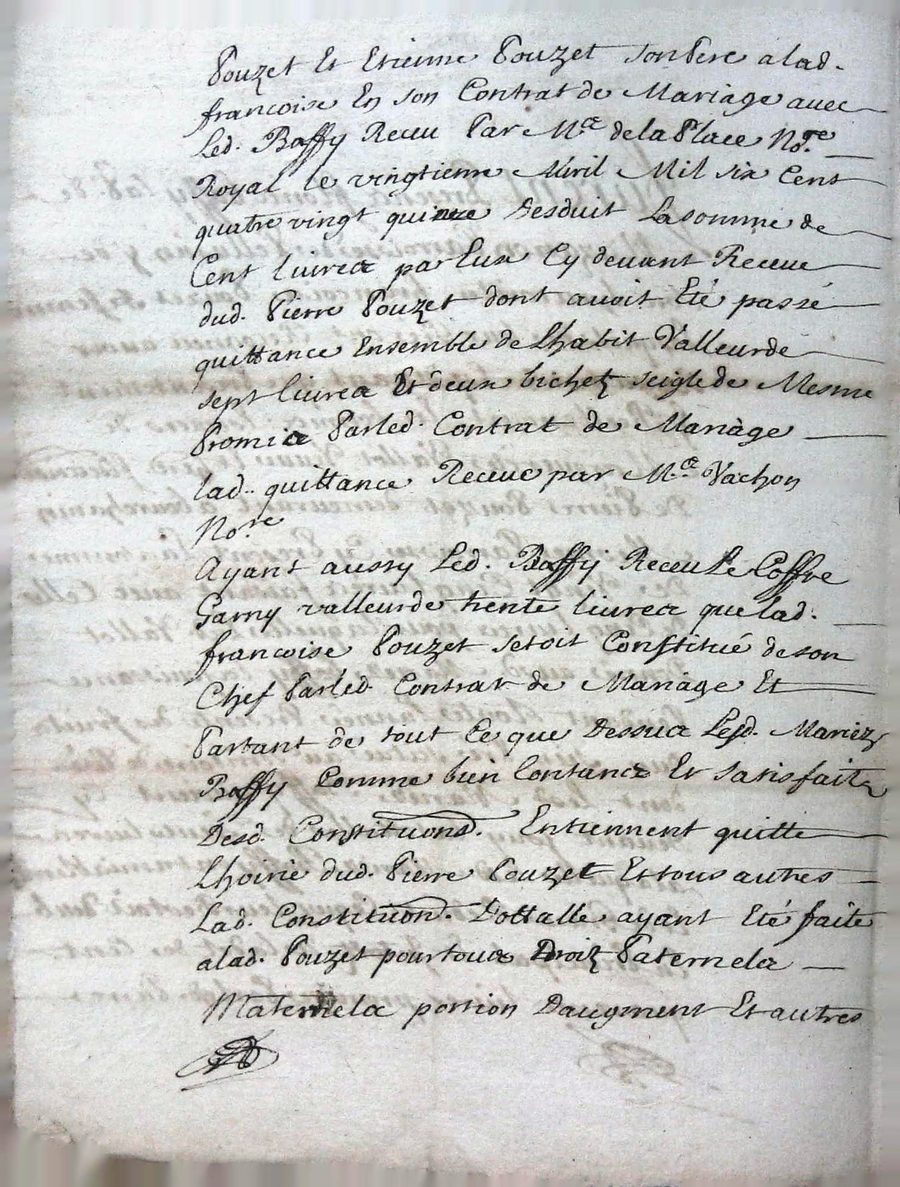 Pouzet Et Etienne Pouzet son Pere a lad.
francoise En son Contrat de Mariage avec
Led. Baffy Receu Par Me. de la Place No.re
Royal le vingtieme Avril Mil six Cent
quatre vingt quinze Desduit La somme de
Cent livres par Eux Cy devant Receue
dud. Pierre Pouzet dont avoit Eté passé
quittance Ensemble de Lhabit Valleur de
sept livres Et deux bichetz seigle de Mesme
Promis Par led. Contrat de Mariage
lad. quittance Receue par Me. Vachon
No.re
Ayant aussy Led. Baffy Receu Le Coffre
Garny valleur de trente livres que lad.
francoise Pouzet setoit Constitué de son
Chef Par led. Contrat de Mariage Et
Partant de tout Ce que Dessus Lesd. Mariez
Baffy Comme bien Contans Et satisfaits
Desd. Constituons. Entiennent quitte
Lhoirie dud. Pierre Pouzet Et tous autres
Lad. Constituon. Dottalle ayant Eté faite
a lad. Pouzet pour tous Droitz Paternels
Maternels portion Daugment Et autres